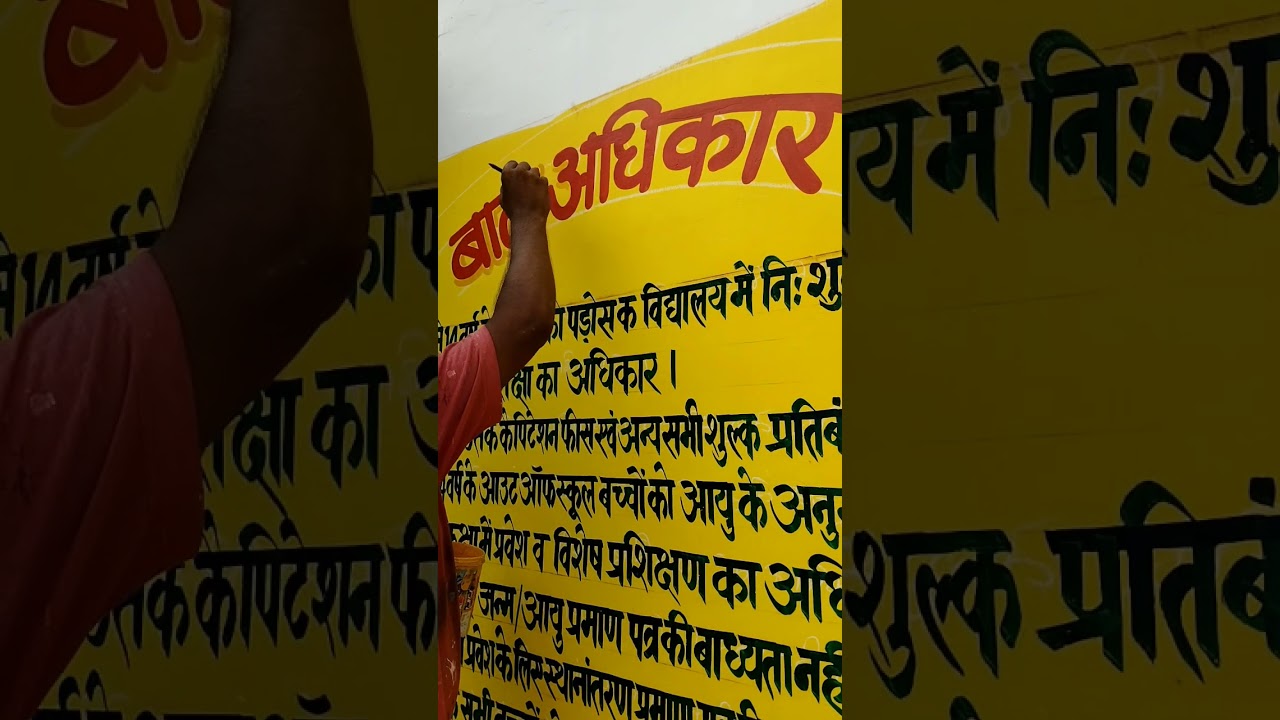 बाल अधिकार
14 वर्ष के का पड़ोस क विद्यालय में नि: शु
क्षा का अधिकार ।
कैपिटेशन फीस एवं अन्य सभी शुल्क प्रतिबं
वर्ष के आउट ऑफ स्कूल बच्चों को आयु के अनु
में प्रवेश व विशेष प्रशिक्षण का अधि
जन्म/आयु प्रमाण पत्र की बाध्यता नही
प्रवेश के लिए स्थानांतरण प्रमाण
सभी